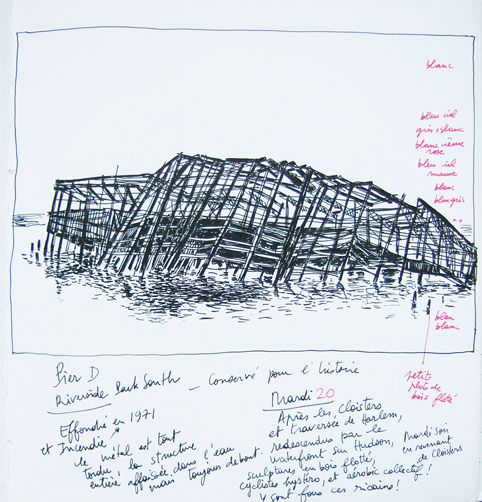 blanc
bleu ciel
gris + blanc
blanc crème
rose
bleu ciel
mauve
blanc
bleu gris
bleu
blanc
petits
plots de
bois flotté
Pier D
Riverside Park South _ Conservé pour l'histoire
Effondré en 1971
et Incendié !
le métal est tout
tordu ! la structure
entière affaissée dans l'eau
mais toujours debout.
Mardi 20
Après les Cloisters
et traversée de Harlem,
redescendus par le
waterfront sur Hudson,
sculptures en bois flotté,
cyclistes hystéro, et aérobic collectif !
Y sont fous ces ricains !
Mardi soir
en revenant
de Cloisters